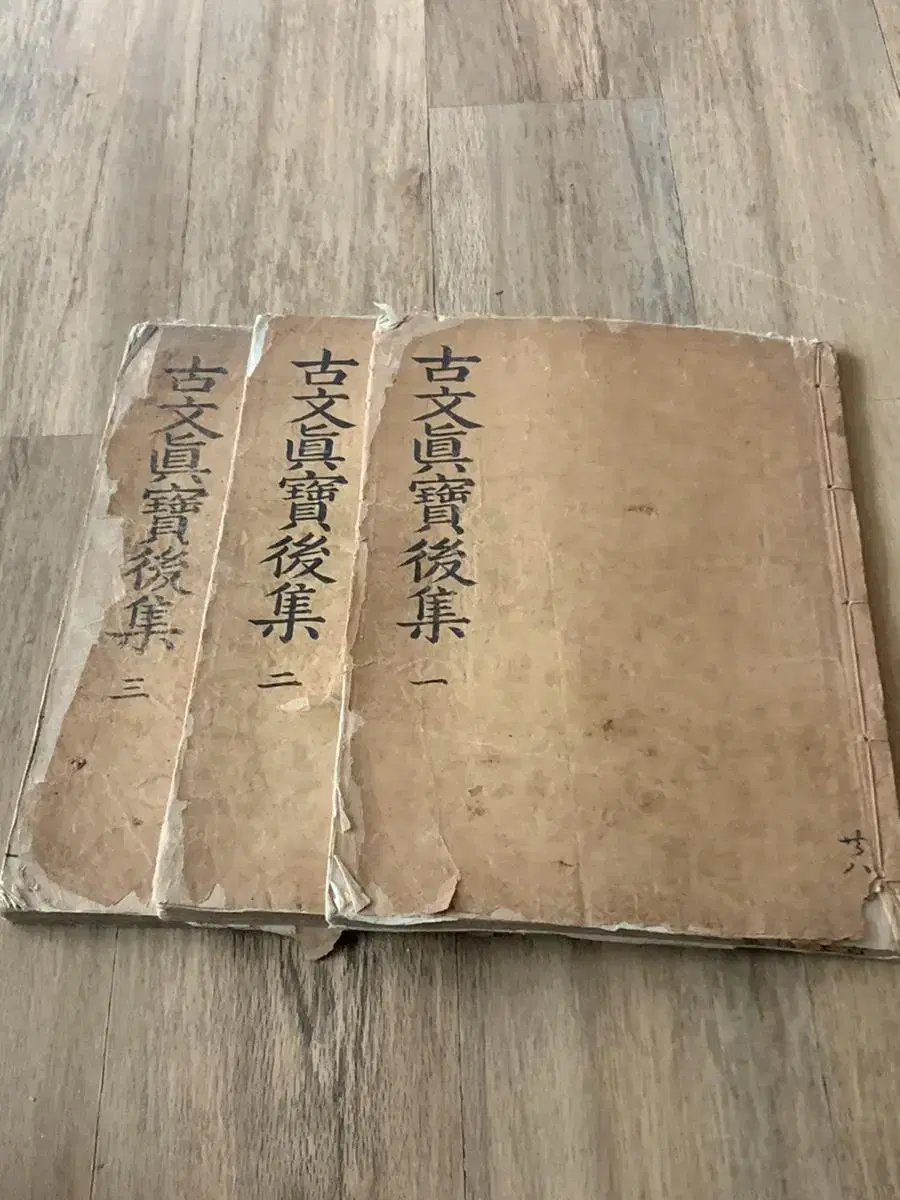 古文眞寶後集
一
古文眞寶後集
二
古文眞寶後集
三